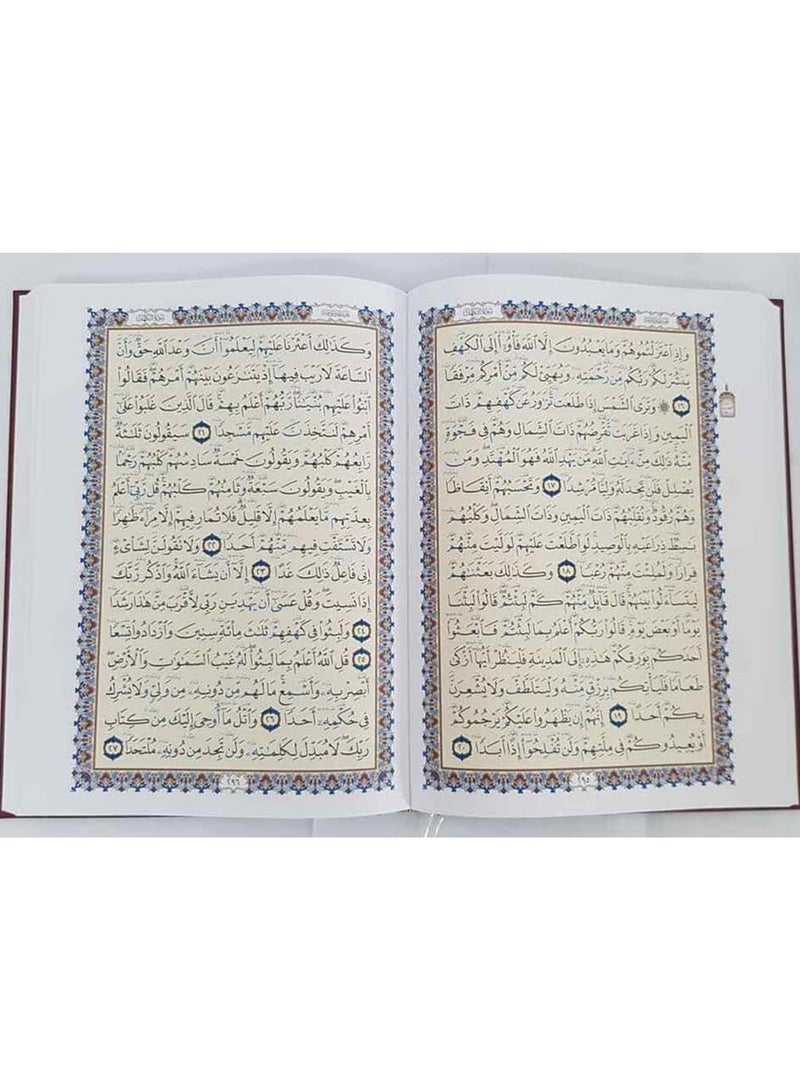 سورة الكهف
وَإِذِ ٱعْتَزَلْتُمُوهُمْ وَمَا يَعْبُدُونَ إِلَّا ٱللَّهَ فَأْوُۥٓا۟ إِلَى ٱلْكَهْفِ
يَنشُرْ لَكُمْ رَبُّكُم مِّن رَّحْمَتِهِۦ وَيُهَيِّئْ لَكُم مِّنْ أَمْرِكُم مِّرْفَقًا
﴿١٦﴾ ۞ وَتَرَى ٱلشَّمْسَ إِذَا طَلَعَت تَّزَٰوَرُ عَن كَهْفِهِمْ ذَاتَ
ٱلْيَمِينِ وَإِذَا غَرَبَت تَّقْرِضُهُمْ ذَاتَ ٱلشِّمَالِ وَهُمْ فِى فَجْوَةٍ
مِّنْهُ ذَٰلِكَ مِنْ ءَايَٰتِ ٱللَّهِ مَن يَهْدِ ٱللَّهُ فَهُوَ ٱلْمُهْتَدِ وَمَن
يُضْلِلْ فَلَن تَجِدَ لَهُۥ وَلِيًّا مُّرْشِدًا ﴿١٧﴾ وَتَحْسَبُهُمْ أَيْقَاظًا
وَهُمْ رُقُودٌ وَنُقَلِّبُهُمْ ذَاتَ ٱلْيَمِينِ وَذَاتَ ٱلشِّمَالِ وَكَلْبُهُم
بَٰسِطٌ ذِرَاعَيْهِ بِٱلْوَصِيدِ لَوِ ٱطَّلَعْتَ عَلَيْهِمْ لَوَلَّيْتَ مِنْهُمْ
فِرَارًا وَلَمُلِئْتَ مِنْهُمْ رُعْبًا ﴿١٨﴾ وَكَذَٰلِكَ بَعَثْنَٰهُمْ
لِيَتَسَآءَلُوا۟ بَيْنَهُمْ قَالَ قَآئِلٌ مِّنْهُمْ كَمْ لَبِثْتُمْ قَالُوا۟ لَبِثْنَا
يَوْمًا أَوْ بَعْضَ يَوْمٍ قَالُوا۟ رَبُّكُمْ أَعْلَمُ بِمَا لَبِثْتُمْ فَٱبْعَثُوٓا۟
أَحَدَكُم بِوَرِقِكُمْ هَٰذِهِۦٓ إِلَى ٱلْمَدِينَةِ فَلْيَنظُرْ أَيُّهَآ أَزْكَىٰ
طَعَامًا فَلْيَأْتِكُم بِرِزْقٍ مِّنْهُ وَلْيَتَلَطَّفْ وَلَا يُشْعِرَنَّ
بِكُمْ أَحَدًا ﴿١٩﴾ إِنَّهُمْ إِن يَظْهَرُوا۟ عَلَيْكُمْ يَرْجُمُوكُمْ
أَوْ يُعِيدُوكُمْ فِى مِلَّتِهِمْ وَلَن تُفْلِحُوٓا۟ إِذًا أَبَدًا ﴿٢٠﴾
٢٩٥
سورة الكهف
وَكَذَٰلِكَ أَعْثَرْنَا عَلَيْهِمْ لِيَعْلَمُوٓا۟ أَنَّ وَعْدَ ٱللَّهِ حَقٌّ وَأَنَّ
ٱلسَّاعَةَ لَا رَيْبَ فِيهَآ إِذْ يَتَنَٰزَعُونَ بَيْنَهُمْ أَمْرَهُمْ فَقَالُوا۟
ٱبْنُوا۟ عَلَيْهِم بُنْيَٰنًا رَّبُّهُمْ أَعْلَمُ بِهِمْ قَالَ ٱلَّذِينَ غَلَبُوا۟ عَلَىٰٓ
أَمْرِهِمْ لَنَتَّخِذَنَّ عَلَيْهِم مَّسْجِدًا ﴿٢١﴾ سَيَقُولُونَ ثَلَٰثَةٌ
رَّابِعُهُمْ كَلْبُهُمْ وَيَقُولُونَ خَمْسَةٌ سَادِسُهُمْ كَلْبُهُمْ رَجْمًۢا
بِٱلْغَيْبِ وَيَقُولُونَ سَبْعَةٌ وَثَامِنُهُمْ كَلْبُهُمْ قُل رَّبِّىٓ أَعْلَمُ
بِعِدَّتِهِم مَّا يَعْلَمُهُمْ إِلَّا قَلِيلٌ فَلَا تُمَارِ فِيهِمْ إِلَّا مِرَآءً ظَٰهِرًا
وَلَا تَسْتَفْتِ فِيهِم مِّنْهُمْ أَحَدًا ﴿٢٢﴾ وَلَا تَقُولَنَّ لِشَا۟ىْءٍ
إِنِّى فَاعِلٌ ذَٰلِكَ غَدًا ﴿٢٣﴾ إِلَّآ أَن يَشَآءَ ٱللَّهُ وَٱذْكُر رَّبَّكَ
إِذَا نَسِيتَ وَقُلْ عَسَىٰٓ أَن يَهْدِيَنِ رَبِّى لِأَقْرَبَ مِنْ هَٰذَا رَشَدًا
﴿٢٤﴾ وَلَبِثُوا۟ فِى كَهْفِهِمْ ثَلَٰثَ مِا۟ئَةٍ سِنِينَ وَٱزْدَادُوا۟ تِسْعًا
﴿٢٥﴾ قُلِ ٱللَّهُ أَعْلَمُ بِمَا لَبِثُوا۟ لَهُۥ غَيْبُ ٱلسَّمَٰوَٰتِ وَٱلْأَرْضِ
أَبْصِرْ بِهِۦ وَأَسْمِعْ مَا لَهُم مِّن دُونِهِۦ مِن وَلِىٍّ وَلَا يُشْرِكُ
فِى حُكْمِهِۦٓ أَحَدًا ﴿٢٦﴾ وَٱتْلُ مَآ أُوحِىَ إِلَيْكَ مِن كِتَابِ
رَبِّكَ لَا مُبَدِّلَ لِكَلِمَٰتِهِۦ وَلَن تَجِدَ مِن دُونِهِۦ مُلْتَحَدًا ﴿٢٧﴾
٢٩٦